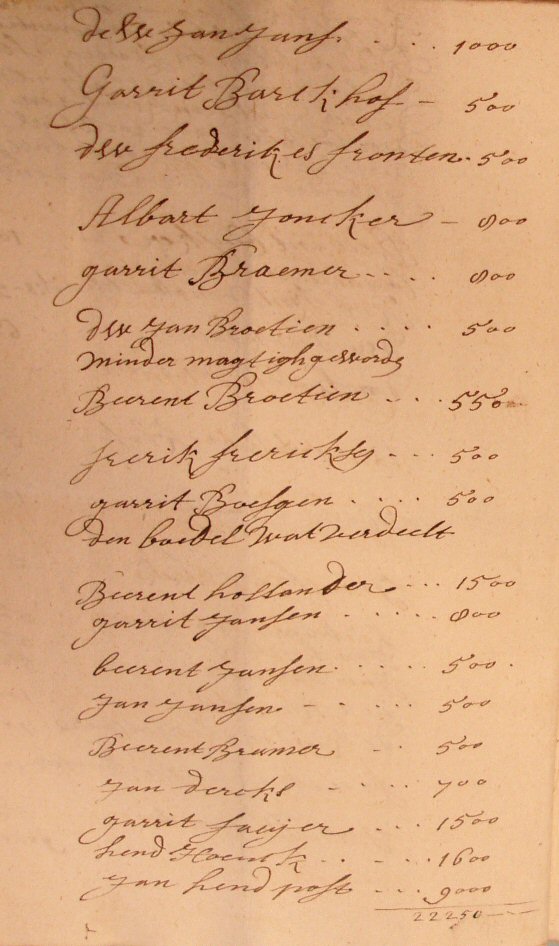 de W Jan Jans. . . . 1000
Garrit Bartkhof - 500
d W frederikes fronten. 500
Albart Joncker - 800
garrit Braemer . . . . 800
d W Jan Broetien . . . . 500
minder magtigh geworde
Beerent Broetien . . . 550
frerik frericksen . . . 500
garrit Boesgen . . . . 500
den boedel wat verdeelt
Beerent hollander . . . 1500
garrit Jansen . . . . . 800
beerent Jansen . . . . . 500.
Jan Jansen - . . . . 500
Beerent Bramer - . 500
Jan dercks - . . . . 700
garrit . . . 1500
hend . . - . . . 1600
Jan hend post - . . . 9000
22250